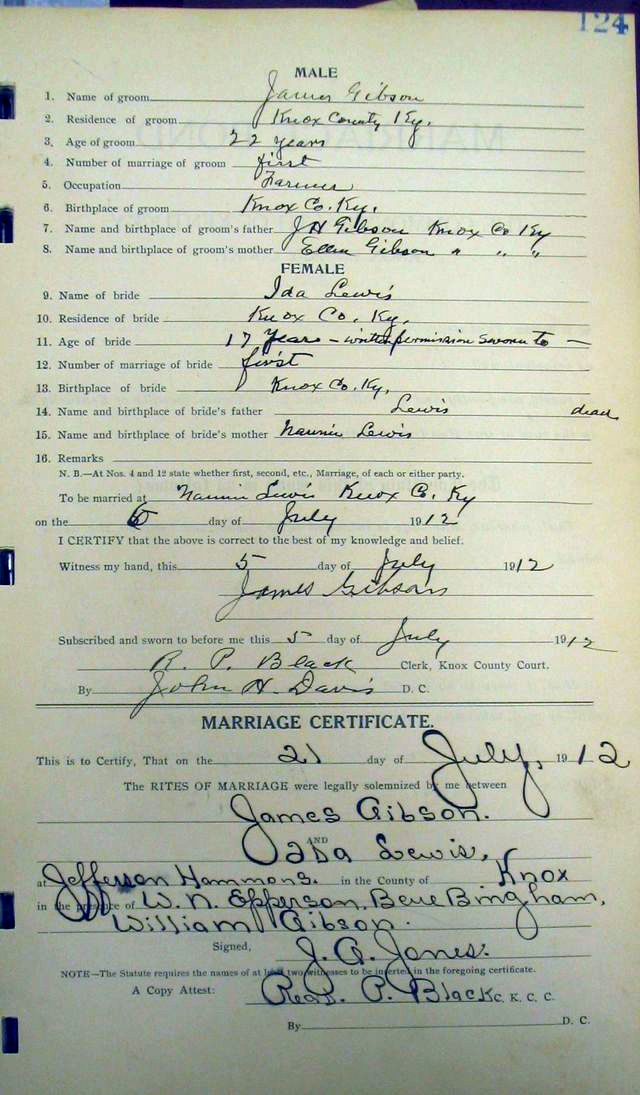 124
MALE
1. Name of groom James Gibson
2. Residence of groom Knox County Ky.
3. Age of groom 22 years
4. Number of marriage of groom first
5. Occupation Farmer
6. Birthplace of groom Knox Co. Ky.
7. Name and birthplace of groom's father J H Gibson Knox Co Ky
8. Name and birthplace of groom's mother Ellen Gibson " " "
FEMALE
9. Name of bride Ida Lewis
10. Residence of bride Knox Co. Ky.
11. Age of bride 17 years – permission sworn to –
12. Number of marriage of bride first
13. Birthplace of bride Knox Co. Ky.
14. Name and birthplace of bride's father Lewis dead
15. Name and birthplace of bride's mother Nannie Lewis
16. Remarks
N. B.—At Nos. 4 and 12 state whether first, second, etc., Marriage, of each or either party.
To be married at Nannie Lewis Knox Co. Ky
on the day of July 1912
I CERTIFY that the above is correct to the best of my knowledge and belief.
Witness my hand, this 5 day of July 1912
James Gibson
Subscribed and sworn to before me this 5 day of July 1912
R. P. Black Clerk, Knox County Court.
By John H. Davis D. C.
MARRIAGE CERTIFICATE.
This is to Certify, That on the 21 day of July, 1912
The RITES OF MARRIAGE were legally solemnized by me between
James Gibson.
AND
Ida Lewis,
at Jefferson Hammons. in the County of Knox
in the presence of W. N. Epperson, Beve Bingham,
William Gibson.
Signed, J. A. Jones.
NOTE—The Statute requires the names of at least two witnesses to be inserted in the foregoing certificate.
A Copy Attest: P. Black C. K. C. C.
By D. C.